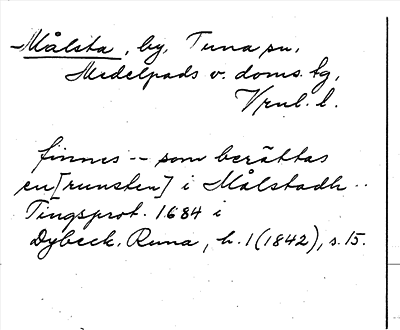 Målsta, by, Tuna sn,
Medelpads v. doms. tg,
Vrnl. l.
finnes -- som berättas
en [runsten] i Målstadh ..
Tingsprot. 1684 i
Dybeck. Runa, h. 1 (1842), s. 15.